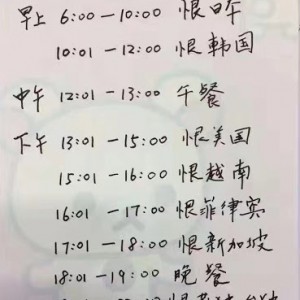 早上 6:00 — 10:00 恨日本
10:01 — 12:00 恨韩国
中午 12:01 — 13:00 午餐
下午 13:01 — 15:00 恨美国
15:01 — 16:00 恨越南
16:01 — 17:00 恨菲律宾
17:01 — 18:00 恨新加坡
18:01 — 19:00 晚餐